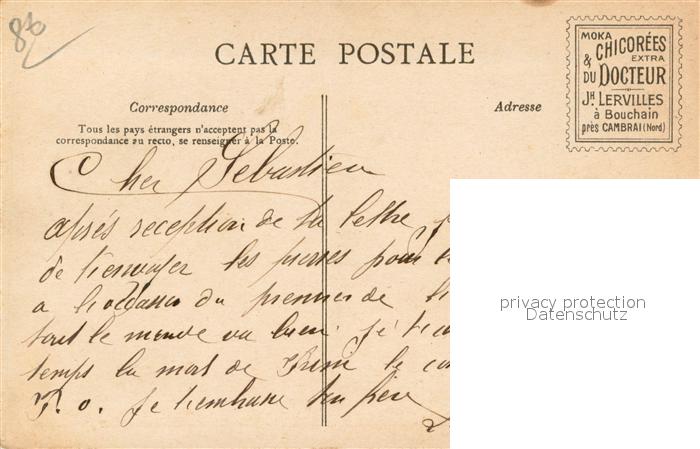 80
CARTE POSTALE
MOKA
& CHICORÉES
EXTRA
DU DOCTEUR
JH LERVILLES
à Bouchain
près CAMBRAI (Nord)
Correspondance
Adresse
Tous les pays étrangers n'acceptent pas la
correspondance au recto, se renseigner à la Poste.
Cher Sebastien
après reception de ta lettre
de t'envoyer les pour
a du premier de
tout le monde va bien
temps la mort de le
je t'embrasse ton frère
privacy protection
Datenschutz